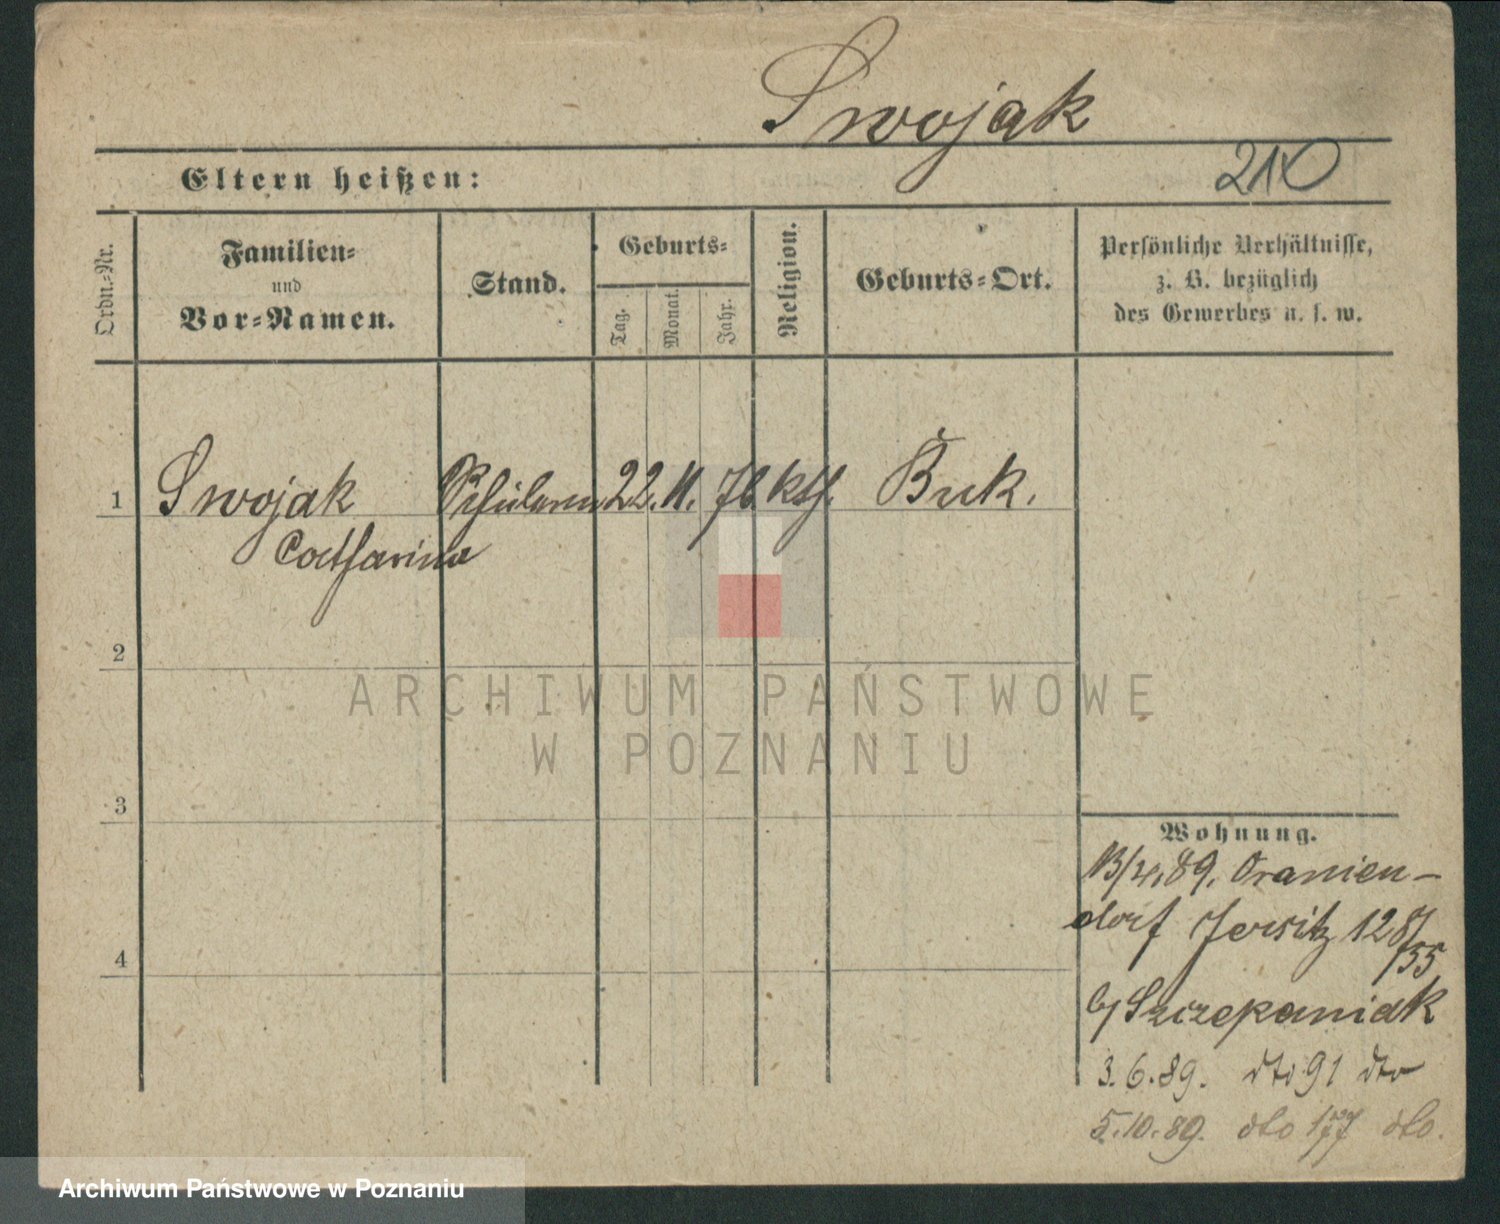 Swojak
210
Eltern heißen:
Ordn.-Nr.
Familien-
und
Vor-Namen.
Stand.
Geburts-
Tag.
Monat.
Jahr.
Religion.
Geburts-Ort.
Persönliche Verhältnisse,
z. B. bezüglich
des Gewerbes u. s. w.
1
Swojak
Catharina
Schülerin
22.
11.
76
kth.
Buk.
2
3
4
Wohnung.
89. Oranien-
dorf Jersitz 128/
55
b/ Szczepaniak
3.6.89. dto 91 dto
5.10.89. dto dto.
ARCHIWUM PAŃSTWOWE
W POZNANIU
Archiwum Państwowe w Poznaniu